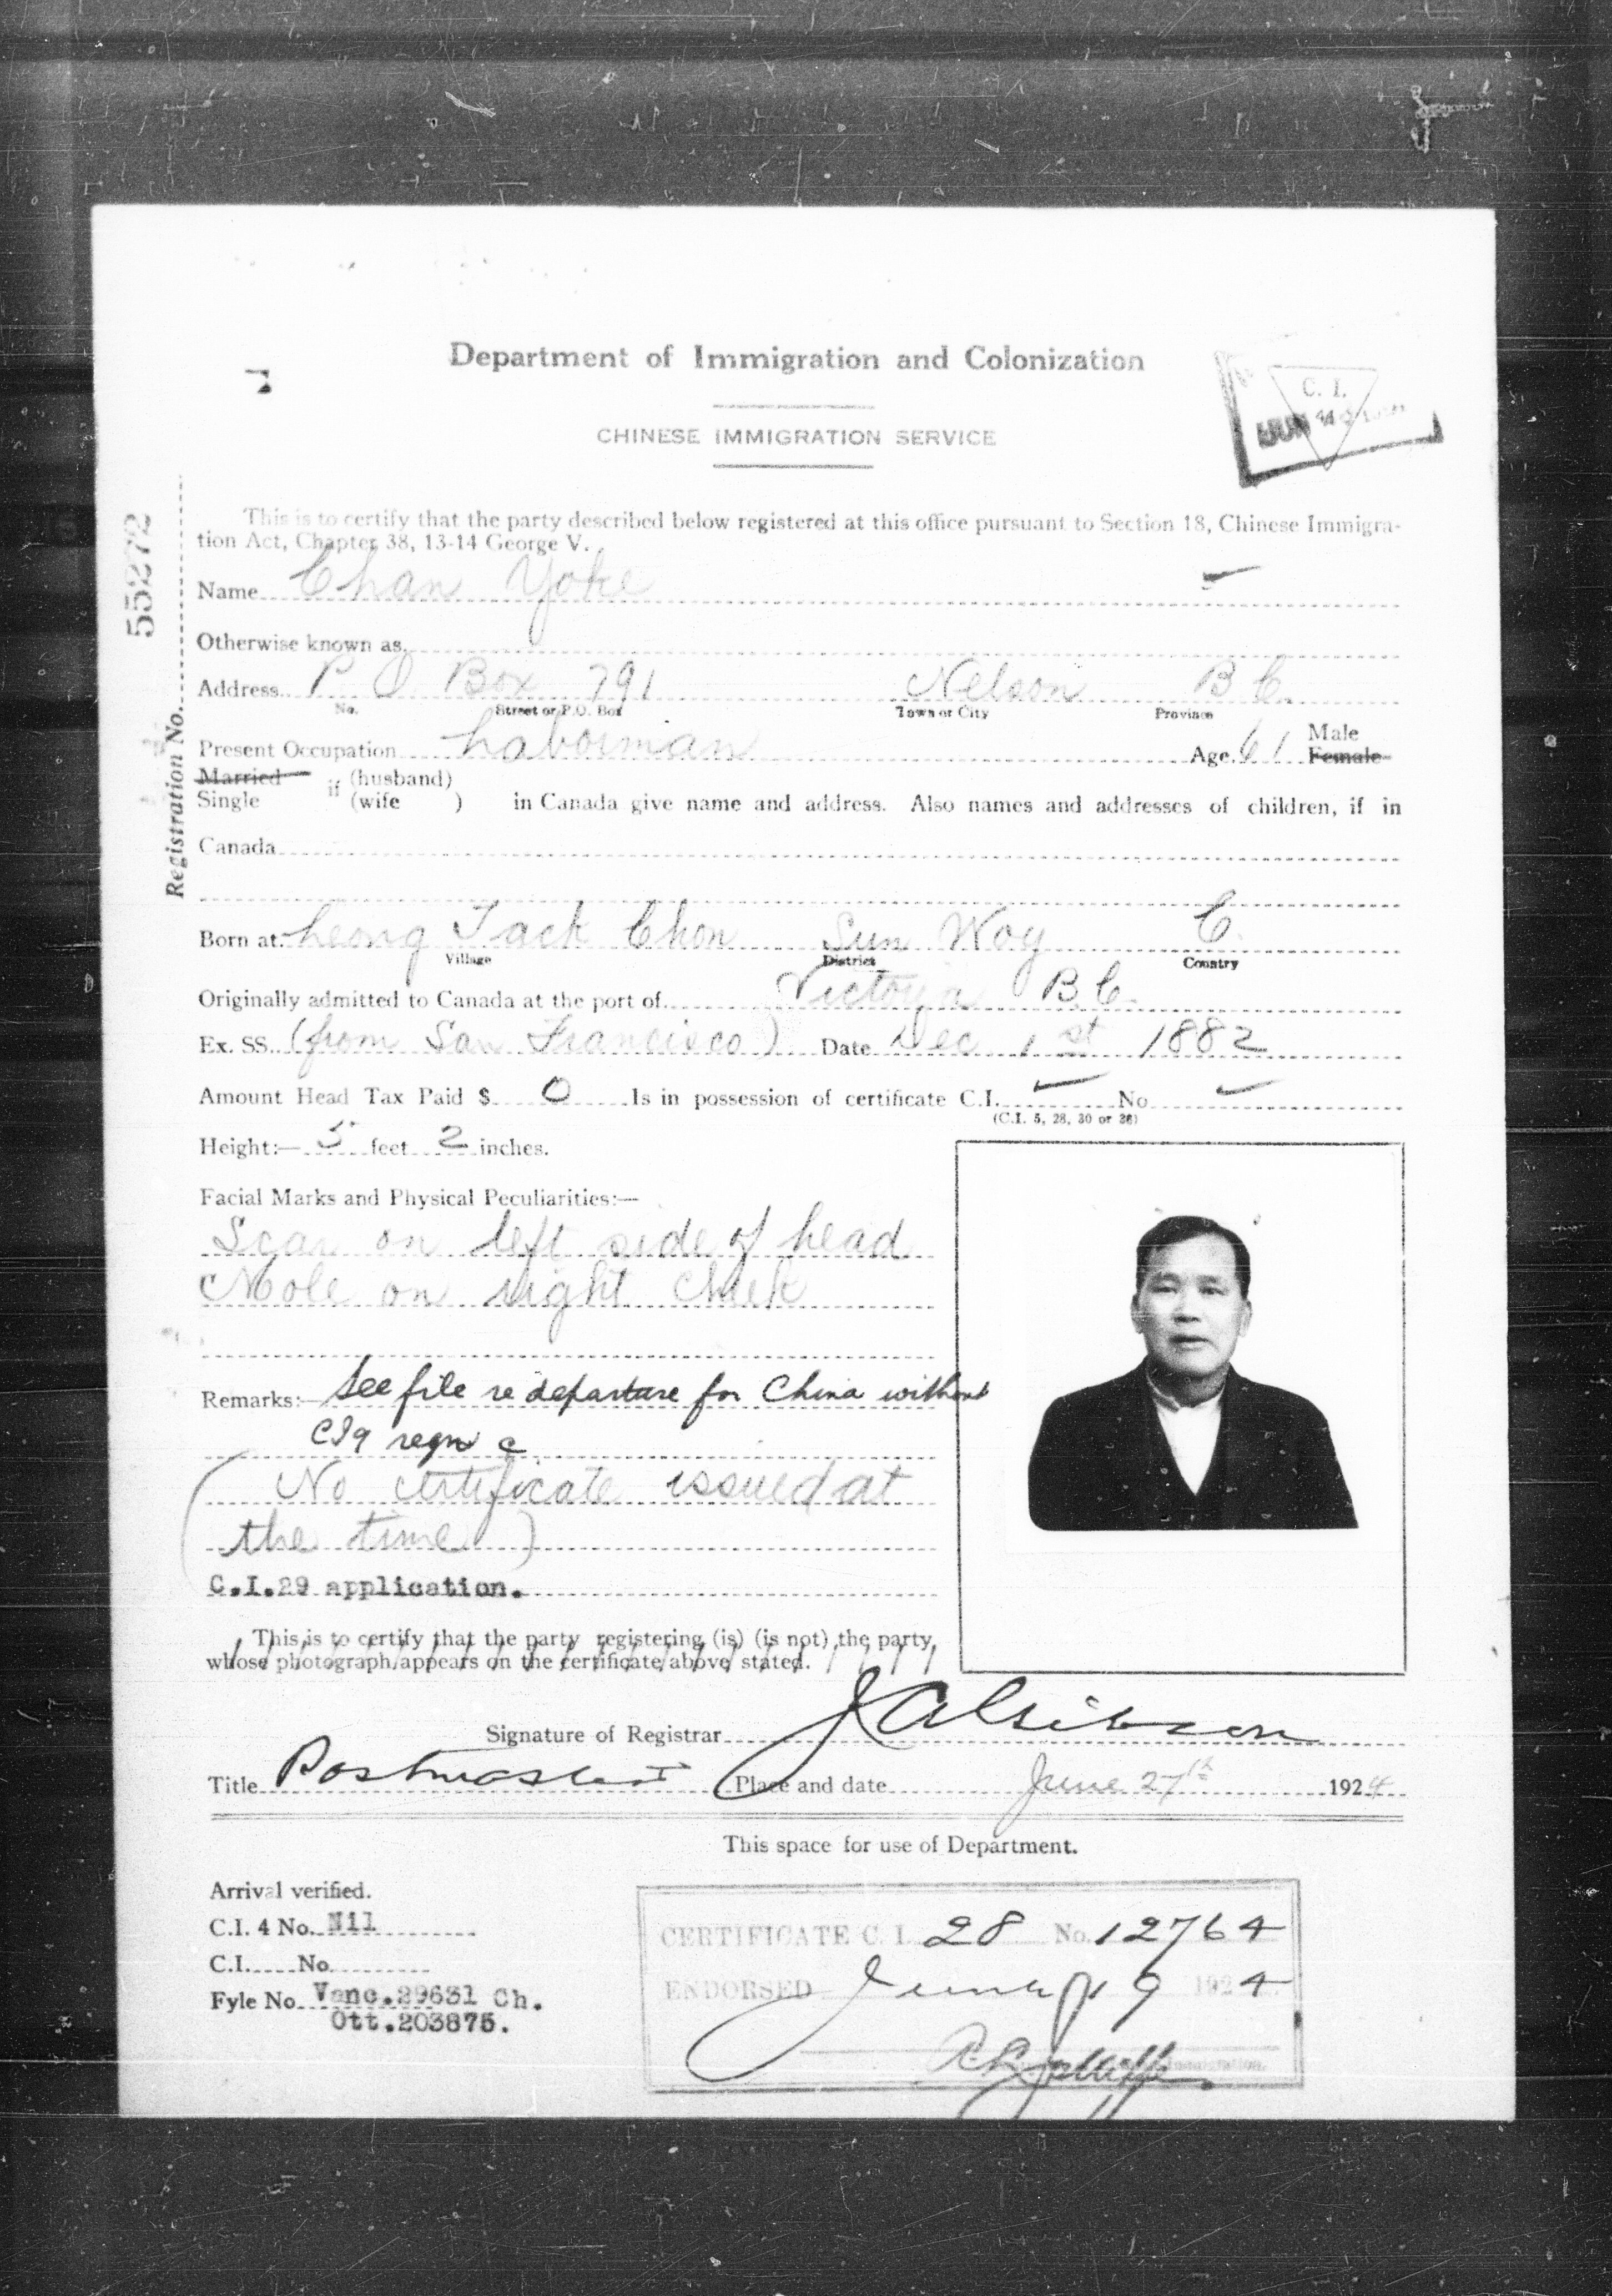 Department of Immigration and Colonization
CHINESE IMMIGRATION SERVICE
C. I.
JUN
55272
Registration No.
This is to certify that the party described below registered at this office pursuant to Section 18, Chinese Immigra-
tion Act, Chapter 38, 13-14 George V.
Name Chan Yoke
Otherwise known as
Address P O Box 791 Nelson B C.
No. Street or P.O. Box Town or City Province
Present Occupation Laborman Age 61 Male
Female
Married
Single if (husband)
(wife ) in Canada give name and address. Also names and addresses of children, if in
Canada
Born at Leong Jack Chon Sun Woy C.
Village District Country
Originally admitted to Canada at the port of Victoria B.C.
Ex. SS. (from San Francisco) Date Dec 1st 1882
Amount Head Tax Paid $ 0 Is in possession of certificate C.I. No
(C.I. 5, 28, 30 or 36)
Height:— 5 feet 2 inches.
Facial Marks and Physical Peculiarities:—
Scar on left side of head
Mole on right cheek
Remarks:— See file re departure for China without
CI9 regn
(No certificate issued at
the time)
C.I.29 application.
This is to certify that the party registering (is) (is not) the party
whose photograph appears on the certificate above stated.
Signature of Registrar J A Gibson
Title Postmaster Place and date June 27th 1924
This space for use of Department.
Arrival verified.
C.I. 4 No. Nil
C.I. No.
Fyle No. Vanc.29631 Ch.
Ott.203875.
CERTIFICATE C. I. 28 No. 12764
ENDORSED 19 1924